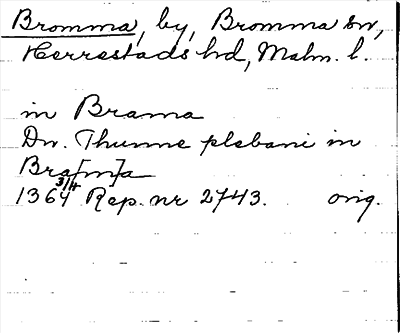 Bromma, by, Bromma sn,
Herrestads hd, Malm. l.
in Brama
Dn. Thunne plebani in
Bra[m]a
1364 3/4 Rep. nr 2743. orig.